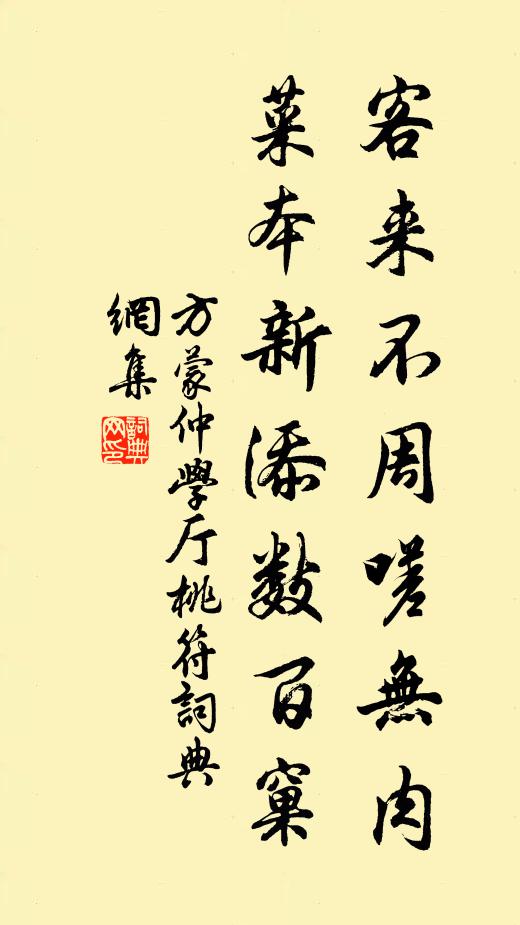 客来不周嗟無肉
菜本新添数百窠
方蒙仲學厅桃符詞典
網集
詞典
网印